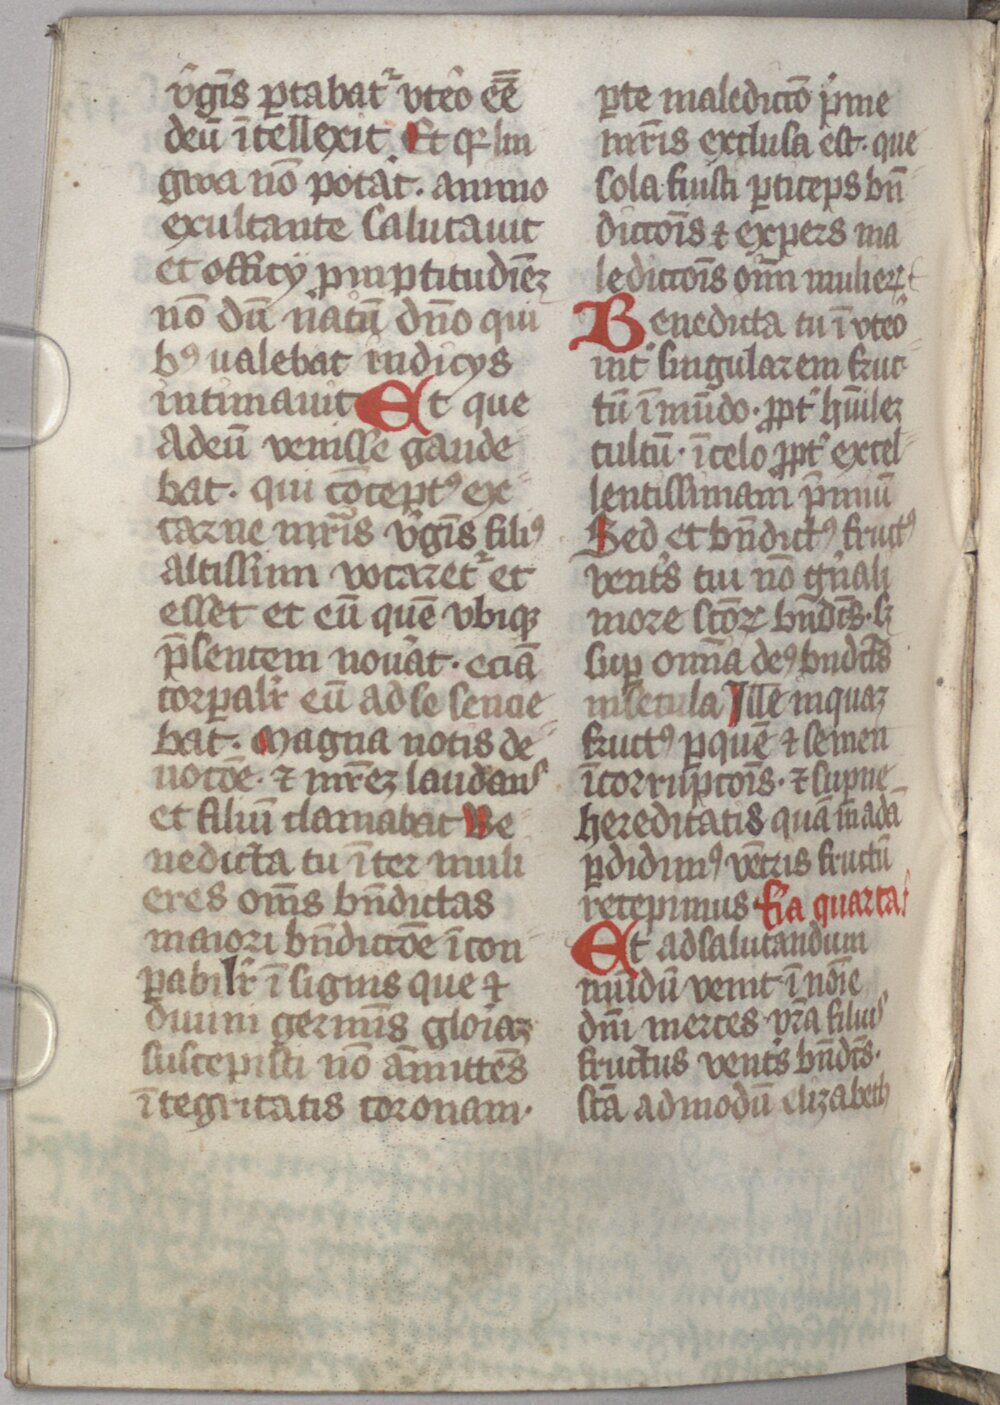 v̉gīs ꝑtabatᷣ vteō eēē
deū ītellexit Et qꝛ lin
gwa nō potat̉. animo
exultante salutauit
et officÿ ꝓmptitudīeꝫ
nō dū natū dn̄o qui
bꝯ ualebat indicÿs
intimauit Et que
adeū venisse gaude
bat. qui cōceptꝯ ex
carne mr̄is v̉gīs filiꝯ
altissim vocaretᷣ et
esset et eū quē vbiqꝫ
p̄sentem nouāt. eciā
corꝑalr̄ eū ad se sencie
bat. Magna uotis de
uotōe. ⁊ mr̄eꝫ laudans
et filiū clamabat Be
nedicta tu īter muli
eres om̄s bn̄dictas
maiori bn̄dictōe īcon
ꝑabilr̄ īsignis que ⁊
diuini germīs gloīaꝫ
suscepisti nō āmittēs
ītegritatis coronam.
ꝑte maledictō p̉me
mr̄is exclusa est. que
sola fuisti ꝑticeps bn̄
dictōis ⁊ expers ma
ledictōis om̄ mulierꝝ
Benedicta tu ī vteō
int̉ singularem fruc
tū ī mūdo. ꝓpt̉ hūileꝫ
cultū. ī celo ꝓpt̉ excel
lentissimam p̄miū
Sed et bn̄dictꝯ fructꝯ
vent̉s tui nō gn̄ali
more sctōꝝ bn̄dc̄s. sꝫ
suꝑ omīa deꝯ bn̄dct̄s
in secula Ille inquaꝫ
fructꝯ ꝑ quē ⁊ semen
īcorrupcōis. ⁊ supne
hereditatis quā in adā
ꝑdidimꝯ vētris fructū
recepimus fīa quarta
Et ad salutandum
mūdū venit ī noīe
dn̄i merces vr̄a filius
fructus vent̉s bn̄dc̄s.
sc̄tā admodū elizabeth